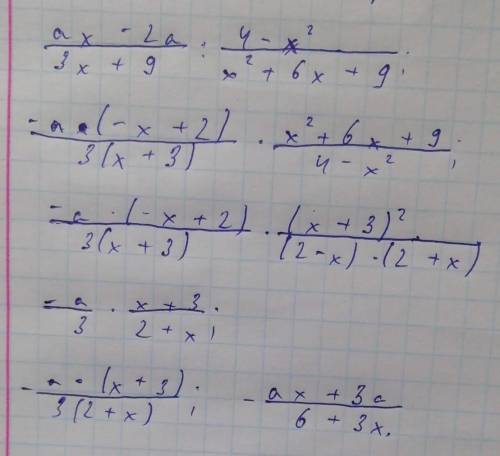 (ax - 2a)/(3x + 9) : (4 - x²)/(x² + 6x + 9);
(-a·(-x + 2))/(3(x + 3)) · (x² + 6x + 9)/(4 - x²);
(-a·(-x + 2))/(3(x + 3)) · (x + 3)²/((2 - x)·(2 + x))
-a/3 · (x + 3)/(2 + x);
-(a·(x + 3))/(3(2 + x)); -(ax + 3a)/(6 + 3x).